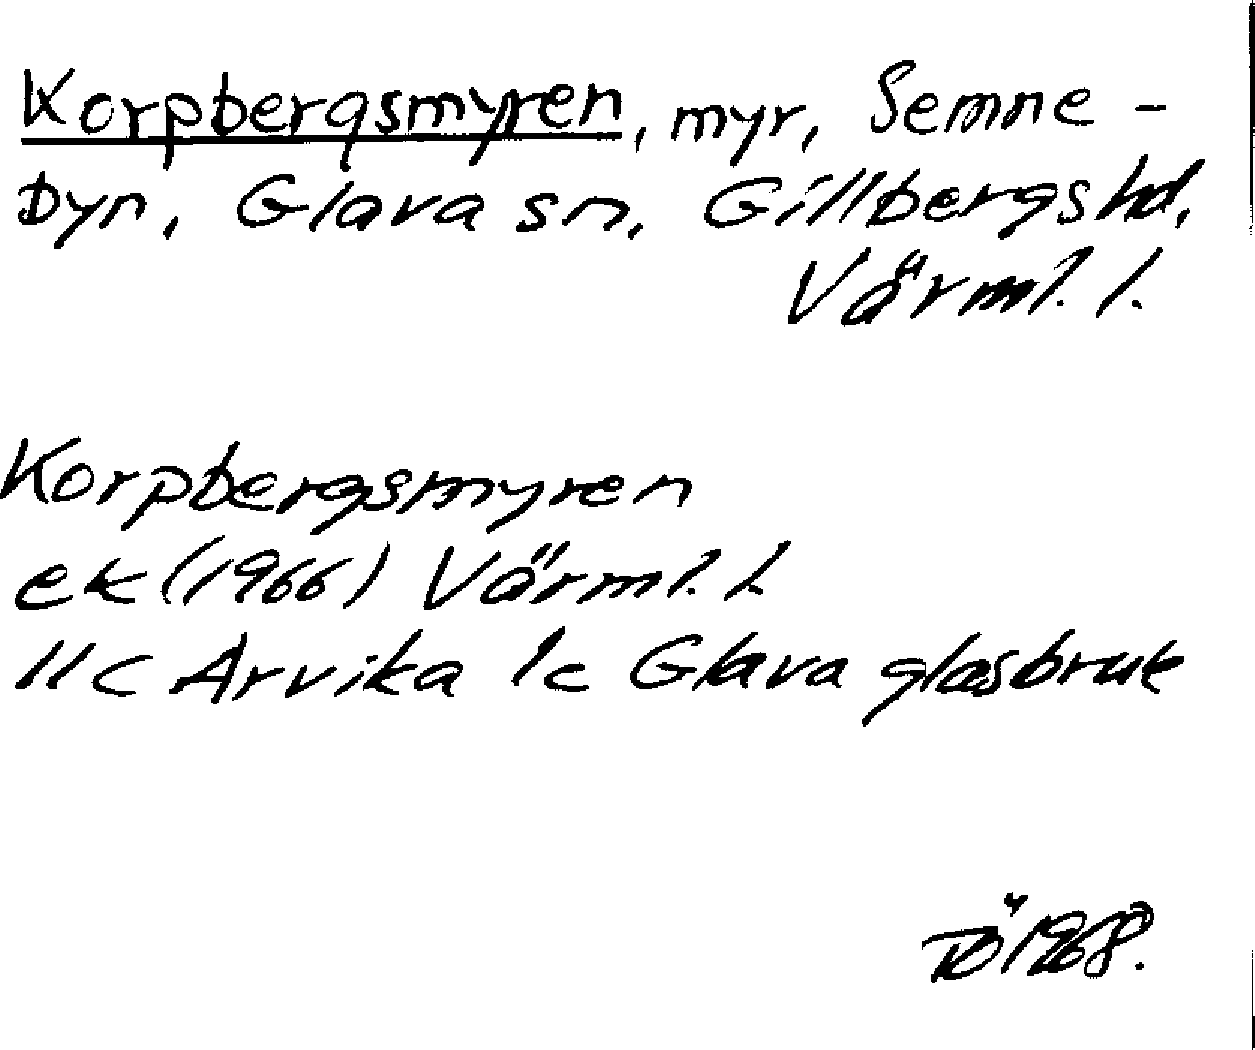 Korpbergsmyren, myr, Semne-
Dyn, Glava sn, Gillbergs hd,
Värml. l.
Korpbergsmyren
ek (1966) Värml. l.
11c Arvika 1c Glava glasbruk
TÖ 1968.